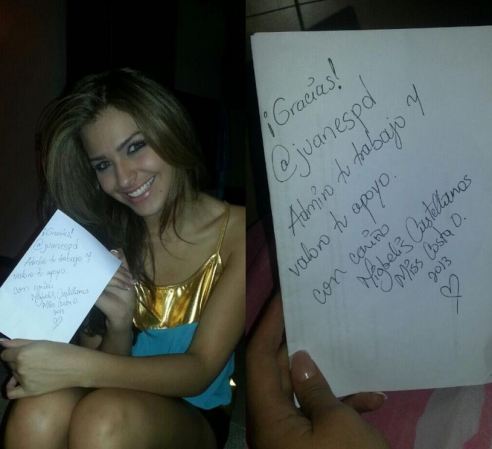 ¡Gracias!
@juanespd
Admiro tu trabajo y
valoro tu apoyo.
con cariño
Migbelis Castellanos
Miss Costa O.
2013
¡Gracias!
@juanespd
Admiro tu trabajo y
valoro tu apoyo.
con cariño
Migbelis Castellanos
Miss Costa O.
2013